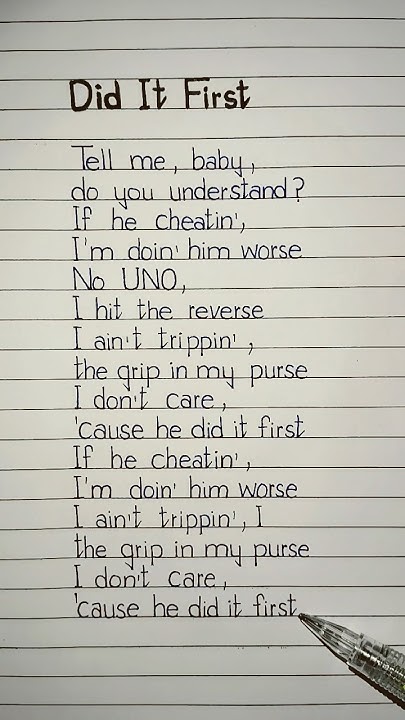 Did It First
Tell me, baby,
do you understand?
If he cheatin',
I'm doin' him worse
No UNO,
I hit the reverse
I ain't trippin',
the grip in my purse
I don't care,
'cause he did it first
If he cheatin',
I'm doin' him worse
I ain't trippin', I
the grip in my purse
I don't care,
'cause he did it first